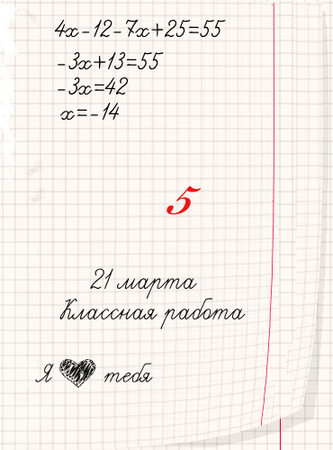 4x-12-7x+25=55
-3x+13=55
-3x=42
x=-14
5
21 марта
Классная работа
Я ♥ тебя